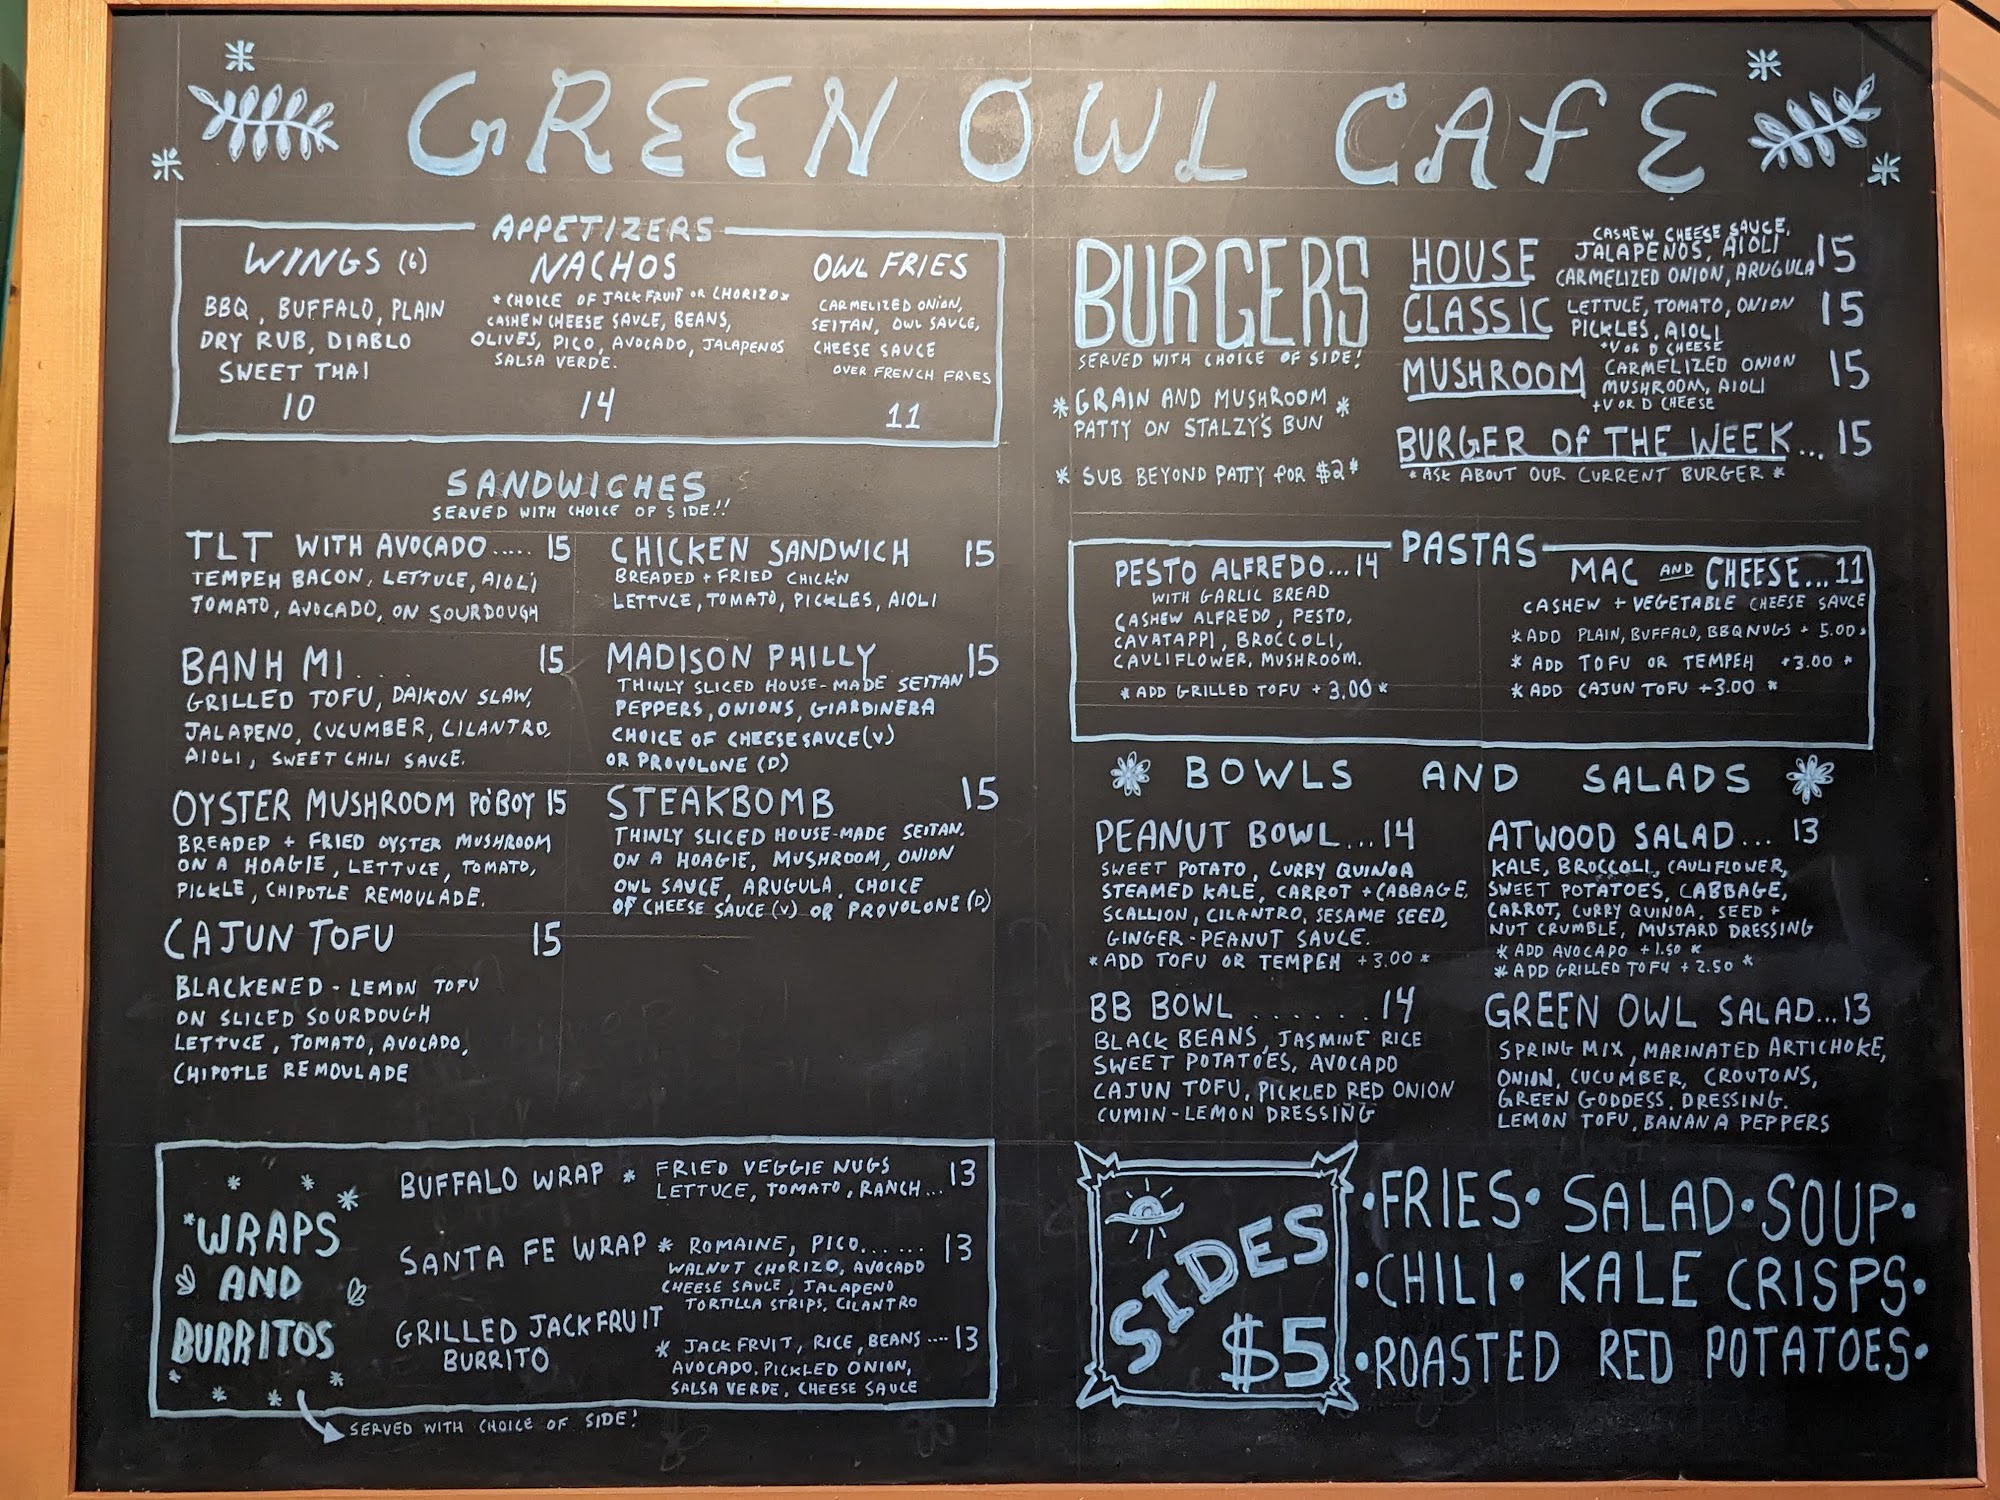 GREEN OWL CAFE
APPETIZERS
WINGS (6)
BBQ, BUFFALO, PLAIN
DRY RUB, DIABLO
SWEET THAI
10
NACHOS
*CHOICE OF JACKFRUIT OR CHORIZO*
CASHEN CHEESE SAUCE, BEANS,
OLIVES, PICO, AVOCADO, JALAPENOS
SALSA VERDE.
14
OWL FRIES
CARMELIZED ONION,
SEITAN, OWL SAUCE,
CHEESE SAUCE
OVER FRENCH FRIES
11
SANDWICHES
SERVED WITH CHOICE OF SIDE!!
TLT WITH AVOCADO..... 15
TEMPEH BACON, LETTUCE, AIOLI
TOMATO, AVOCADO, ON SOURDOUGH
BANH MI .... 15
GRILLED TOFU, DAIKON SLAW,
JALAPENO, CUCUMBER, CILANTRO,
AIOLI, SWEET CHILI SAUCE.
OYSTER MUSHROOM PO'BOY 15
BREADED + FRIED OYSTER MUSHROOM
ON A HOAGIE, LETTUCE, TOMATO,
PICKLE, CHIPOTLE REMOULADE.
CAJUN TOFU 15
BLACKENED - LEMON TOFU
ON SLICED SOURDOUGH
LETTUCE, TOMATO, AVOCADO,
CHIPOTLE REMOULADE
CHICKEN SANDWICH 15
BREADED + FRIED CHICK'N
LETTUCE, TOMATO, PICKLES, AIOLI
MADISON PHILLY 15
THINLY SLICED HOUSE-MADE SEITAN
PEPPERS, ONIONS, GIARDINERA
CHOICE OF CHEESE SAUCE (V)
OR PROVOLONE (D)
STEAKBOMB 15
THINLY SLICED HOUSE-MADE SEITAN.
ON A HOAGIE, MUSHROOM, ONION
OWL SAUCE, ARUGULA, CHOICE
OF CHEESE SAUCE (V) OR PROVOLONE (D)
WRAPS
AND
BURRITOS
BUFFALO WRAP * FRIED VEGGIE NUGS
LETTUCE, TOMATO, RANCH... 13
SANTA FE WRAP * ROMAINE, PICO...... 13
WALNUT CHORIZO, AVOCADO
CHEESE SAUCE, JALAPENO
TORTILLA STRIPS, CILANTRO
GRILLED JACKFRUIT
BURRITO
* JACKFRUIT, RICE, BEANS .... 13
AVOCADO, PICKLED ONION,
SALSA VERDE, CHEESE SAUCE
SERVED WITH CHOICE OF SIDE!
BURGERS
SERVED WITH CHOICE OF SIDE!
* GRAIN AND MUSHROOM *
PATTY ON STALZY'S BUN
* SUB BEYOND PATTY FOR $2 *
HOUSE
CASHEW CHEESE SAUCE,
JALAPENOS, AIOLI
CARMELIZED ONION, ARUGULA
15
CLASSIC
LETTUCE, TOMATO, ONION
PICKLES, AIOLI
+V OR D CHEESE
15
MUSHROOM
CARMELIZED ONION
MUSHROOM, AIOLI
+V OR D CHEESE
15
BURGER OF THE WEEK... 15
*ASK ABOUT OUR CURRENT BURGER*
PASTAS
PESTO ALFREDO... 14
WITH GARLIC BREAD
CASHEW ALFREDO, PESTO,
CAVATAPPI, BROCCOLI,
CAULIFLOWER, MUSHROOM.
* ADD GRILLED TOFU + 3.00 *
MAC AND CHEESE... 11
CASHEW + VEGETABLE CHEESE SAUCE
*ADD PLAIN, BUFFALO, BBQ NUGS + 5.00*
* ADD TOFU OR TEMPEH +3.00 *
* ADD CAJUN TOFU +3.00 *
BOWLS AND SALADS
PEANUT BOWL... 14
SWEET POTATO, CURRY QUINOA
STEAMED KALE, CARROT + CABBAGE,
SCALLION, CILANTRO, SESAME SEED,
GINGER-PEANUT SAUCE.
*ADD TOFU OR TEMPEH +3.00 *
BB BOWL ...... 14
BLACK BEANS, JASMINE RICE
SWEET POTATOES, AVOCADO
CAJUN TOFU, PICKLED RED ONION
CUMIN-LEMON DRESSING
ATWOOD SALAD... 13
KALE, BROCCOLI, CAULIFLOWER,
SWEET POTATOES, CABBAGE,
CARROT, CURRY QUINOA, SEED +
NUT CRUMBLE, MUSTARD DRESSING
* ADD AVOCADO +1.50 *
* ADD GRILLED TOFU + 2.50 *
GREEN OWL SALAD... 13
SPRING MIX, MARINATED ARTICHOKE,
ONION, CUCUMBER, CROUTONS,
GREEN GODDESS DRESSING.
LEMON TOFU, BANANA PEPPERS
SIDES
$5
•FRIES• SALAD•SOUP•
•CHILI• KALE CRISPS•
•ROASTED RED POTATOES•